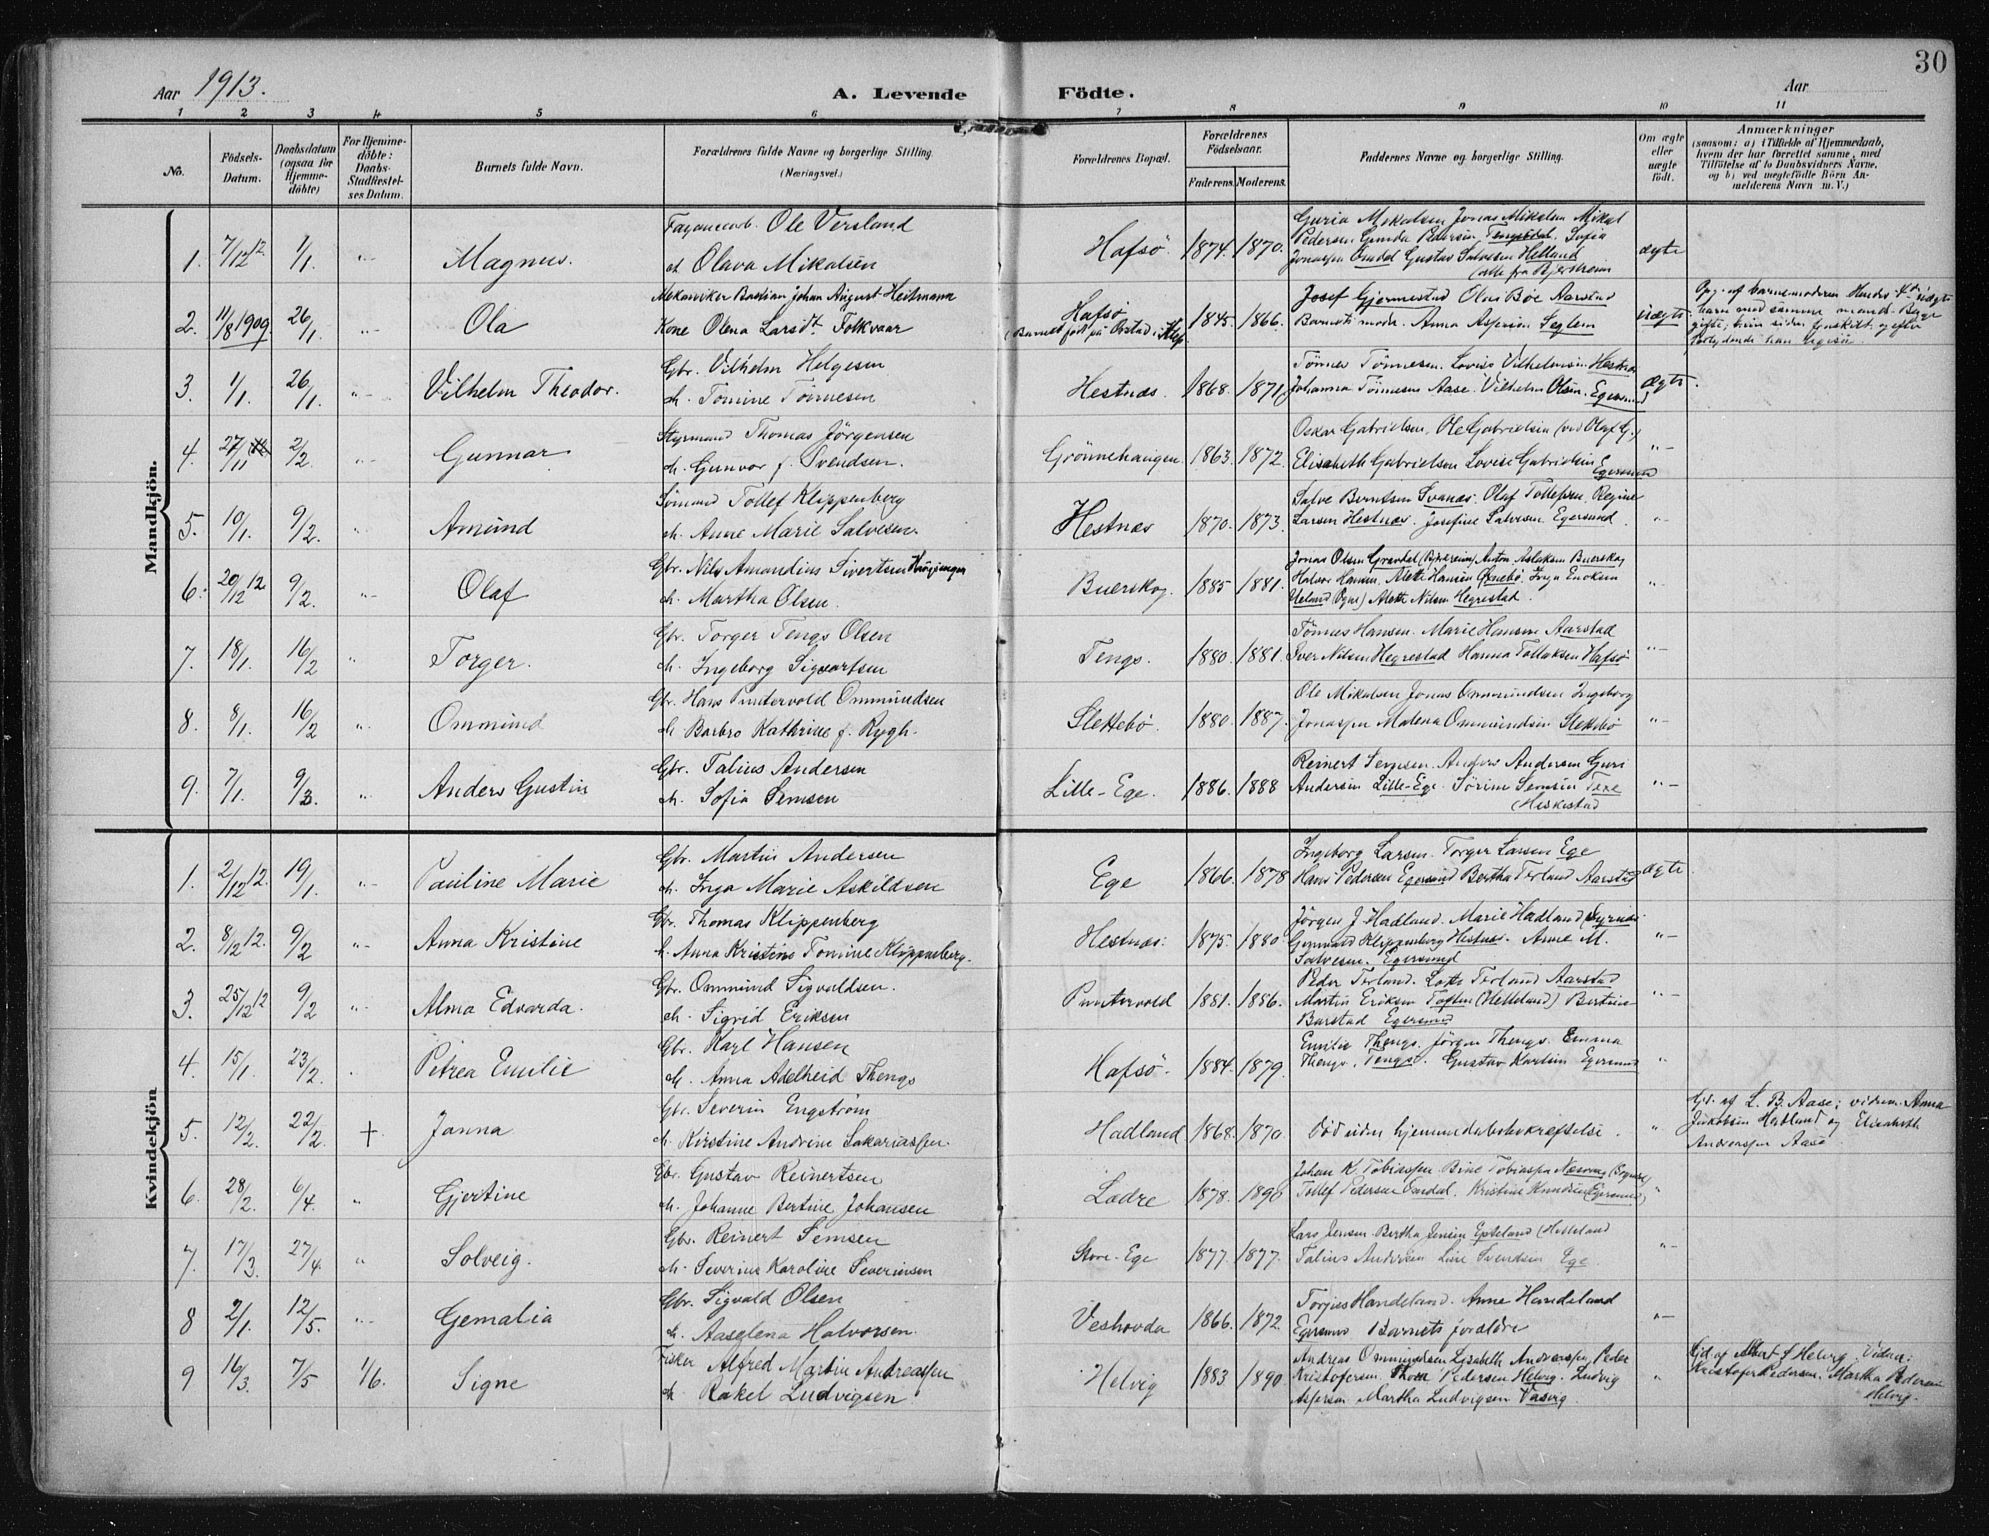 30
Aar 1913.
A. Levende Födte.
Aar
1 2 3 4 5 6 7 8 9 10 11
No.
Födsels-
Datum.
Daabsdatum
(ogsaa for
Hjemme-
döbte)
For Hjemme-
döbte:
Daabs-
Stadfæstel-
ses Datum.
Barnets fulde Navn.
Forældrenes fulde Navne og borgerlige Stilling
(Næringsvei.)
Forældrenes Bopæl.
Forældrenes
Födselsaar.
Faderens. Moderens.
Faddernes Navne og borgerlige Stilling.
Om ægte
eller
uægte
födt.
Anmærkninger
(saasom: a) i Tilfælde af Hjemmedaab,
hvem der har forrettet samme, med
Tilföielse af to Daabsvidners Navne,
og b) ved uægtefödte Börn An-
melderens Navn m. V.)
Mandkjön.
1. 7/12 12 1/1 "- Magnus.
Ole Versland
Olava Mikalsen
Hafsö 1874. 1870.
Guria Mikalsen Jonas Mikalsen Mikal
Pedersen. Gunda Pedersen. Sofia
Jonassen Omdal Gustav Salvesen Helland
(alle fra Bjerkreim
ægte
2. 11/8 1909 26/1 "- Ola
Mekaniker Bastian Johan August Heitmann
Kone Olena Larsdt. Folkvaar
Hafsö
(Barnet född på Orstad i Klep
1845. 1866.
Josef Gjermestad Olas Böe Aarstad
Barnets moder. Anna Aspersen Seglem
uægte
3. 1/1 26/1 "- Vilhelm Theodor.
Gbr. Vilhelm Helgesen
h. Tomine Tönnesen
Hestnæs. 1868. 1871
Tönnes Tönnesen. Lovise Vilhelmsen Hestnæs
Johanna Tönnesen Aase. Vilhelm Olsen. Egersund
ægte.
4. 27/11 2/2 "- Gunnar
Styrmand Thomas Jörgensen
h. Gunvor f. Svendsen.
Grönnehaugen 1863. 1872.
Oskar Gabrielsen. Ole Gabrielsen (ved Olaf G.)
Elisabeth Gabrielsen Lovise Gabrielsen
Egersund
"-
5. 10/1. 9/2. "- Amund
Sömand Tollef Klippenberg
h. Anne Marie Salvesen.
Hestnæs 1870. 1873.
Salve Berntsen Svanæs. Olaf Tollefsen. Regine
Larsen Hestnæs. Josefine Salvesen Egersund.
"-
6. 20/12 12 9/2. "- Olaf
Gbr. Nils Amandius Sivertsen
h. Martha Olsen.
Buerskog. 1885 1881.
Jonas Olsen Gravdal (Bjerkreim) Anton Aslaksen Buerskog
Halvor Hansen. Alette Hansen Öxnebö. Inga Eriksen
Ueland (Ogne) Alette Nilsen Hegrestad.
"-
7. 18/1. 16/2 " Torger.
Gbr. Torger Tengs Olsen
h. Ingeborg Sigvartsen
Tengs. 1880. 1881.
Tönnes Hansen. Marie Hansen Aarstad
Iver Nilsen Hegrestad Hanna Tollaksen Hafsö
"-
8. 8/1. 16/2 "- Ommund
Gbr. Hans Puntervold Ommundsen
h. Barbro Kathrine f. Rygh.
Slettebö. 1880. 1887.
Ole Mikalsen Jonas Ommundsen Ingeborg
Jonassen Malena Ommundsen Slettebö
"-
9. 7/1. 9/3. "- Anders Gustin
Gbr. Talius Andersen
h. Sofia Semsen
Lille-Ege. 1886. 1888
Reinert Semsen. Anders Andersen Guri
Andersen Lille-Ege. Sörine Semsen
(Heskestad
"-
Kvindekjön
1. 2/12 12. 19/1. "- Pauline Marie
Gbr. Martin Andersen
h. Inga Marie Askildsen
Ege 1866. 1878
Ingeborg Larsen. Torger Larsen Ege
Hans Pedersen Egersund Bertha Terland Aarstad
ægte
2. 8/12 12. 9/2 "- Anna Kristine
Gbr. Thomas Klippenberg
h. Anna Kristine Tomine Klippenberg.
Hestnæs. 1875. 1880
Jörgen J. Hadland. Marie Hadland
Klippenberg Hestnæs. Anne M.
Salvesen. Egersund
"-
3. 25/12 12 9/2 "- Alma Edvarda.
Gbr. Ommund Sigvaldsen.
h. Sigrid Eriksen
Puntervold 1881. 1886.
Peder Terland. Terland Aarstad
Martin Eriksen (Helleland) Bertine
Barstad Egersund
"-
4. 15/1. 23/2. " Petrea Emilie
Gbr. Karl Hansen
h. Anna Adelheid Thengs
Hafsö. 1884. 1879.
Emilie Thengs. Jörgen Thengs. Emma
Thengs. Tengs. Gustav Karlsen Egersund
"
5. 12/2. 22/2. † Janna
Gbr. Severin Engström
h. Kirstine Andrine Sakariassen
Hadland 1868. 1870.
Död uden hjemmedaabsbekræftelse.
"
Gd. af L. B. Aase; vidner. Anna
Jakobsen Hadland og Elisabeth
Andreassen Aase.
6. 28/2. 6/4. " Gjertine
Gbr. Gustav Reinertsen
h. Johanne Bertine Johansen
Ladre 1878. 1890
Johan K. Tobiassen. Bine Tobiassen (Sogndal)
Tollef Pedersen Omdal. Kristine Knudsen (Egersund)
"
7. 17/3. 27/4. " Solveig.
Gbr. Reinert Semsen
h. Severine Karoline Severinsen
Store-Ege 1877. 1877.
Lars Jensen. Bertha Jensen Epteland (Helleland
Talius Andersen Line Svendsen Ege
"-
8 2/1. 12/5. "- Gemalia
Gbr. Sigvald Olsen
h. Aaselena Halvorsen.
Veshovda 1866. 1872.
Torjus Handeland. Anne Handeland
Egersund Barnets forældre
"-
9 16/3. 7/5 1/6. Signe
Fisker Alfred Martin Andreassen
h. Rakel Ludvigsen
Helvig 1883. 1890.
Andreas Ommundsen Lisabeth Andreassen, Peder
Kristofersen. Pedersen Helvig. Ludvig
Aspersen Martha Ludvigsen Vasvig.
"
Hjd af Albert Helvig. Vidner:
Kristofer Pedersen. Martha Pedersen
Helvig.